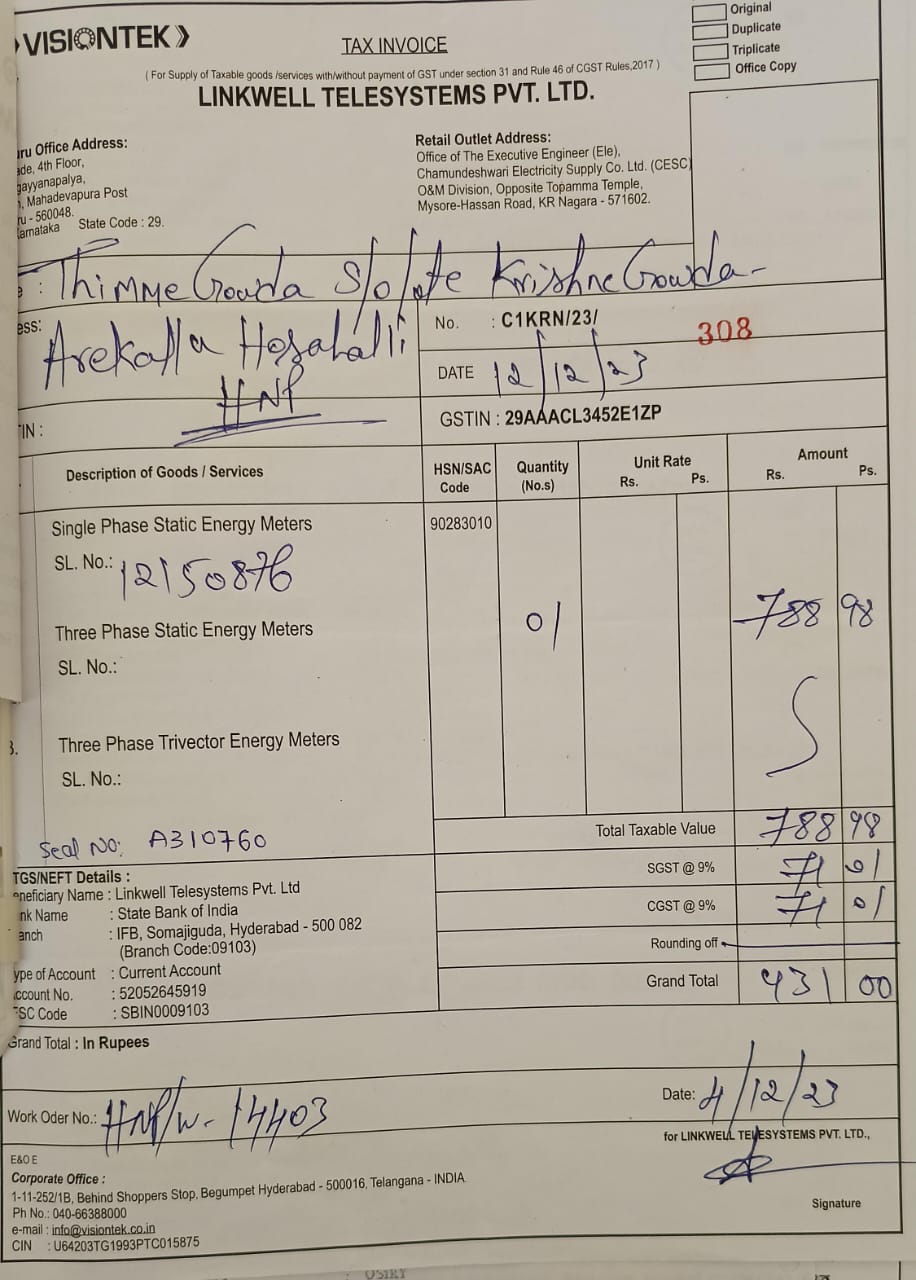 VISIONTEK
TAX INVOICE
Original
Duplicate
Triplicate
Office Copy
( For Supply of Taxable goods /services with/without payment of GST under section 31 and Rule 46 of CGST Rules,2017 )
LINKWELL TELESYSTEMS PVT. LTD.
ru Office Address:
ade, 4th Floor,
gayyanapalya,
, Mahadevapura Post
ru - 560048.
arnataka State Code : 29.
Retail Outlet Address:
Office of The Executive Engineer (Ele),
Chamundeshwari Electricity Supply Co. Ltd. (CESC)
O&M Division, Opposite Topamma Temple,
Mysore-Hassan Road, KR Nagara - 571602.
e : Thimme Gowda S/o late Krishne Gowda
ess: Arekalla Hosahalli
HNP
No. : C1KRN/23/ 308
DATE 12/12/23
TIN :
GSTIN : 29AAACL3452E1ZP
Description of Goods / Services HSN/SAC Code Quantity (No.s) Unit Rate Rs. Ps. Amount Rs. Ps.
Single Phase Static Energy Meters 90283010
SL. No.: 12150876
01 788 98
Three Phase Static Energy Meters
SL. No.:
3. Three Phase Trivector Energy Meters
SL. No.:
Seal No: A310760
Total Taxable Value 788 98
SGST @ 9% 71 01
CGST @ 9% 71 01
Rounding off
Grand Total 931 00
TGS/NEFT Details :
eneficiary Name : Linkwell Telesystems Pvt. Ltd
nk Name : State Bank of India
anch : IFB, Somajiguda, Hyderabad - 500 082
(Branch Code:09103)
ype of Account : Current Account
ccount No. : 52052645919
FSC Code : SBIN0009103
Grand Total : In Rupees
Work Oder No.: HNP/W- 14403
Date: 4/12/23
for LINKWELL TELESYSTEMS PVT. LTD.,
Signature
E&O E
Corporate Office :
1-11-252/1B, Behind Shoppers Stop, Begumpet Hyderabad - 500016, Telangana - INDIA.
Ph No.: 040-66388000
e-mail : info@visiontek.co.in
CIN : U64203TG1993PTC015875